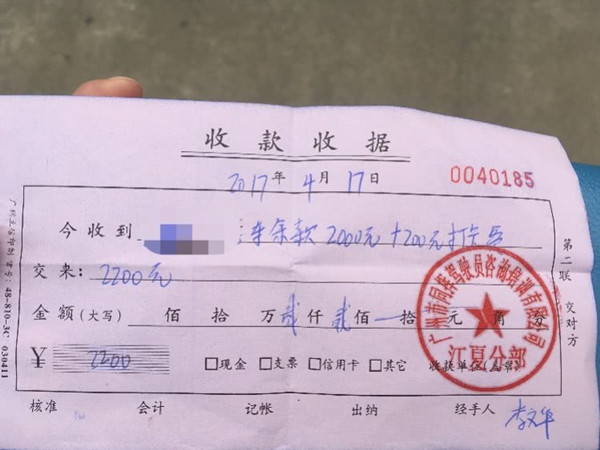 收款收据
2017年4月17日 0040185
今收到 余款2000元+200元打卡
交来:2200元
金额(大写) 佰 拾 万 贰 仟 贰 佰 拾 元 角 分
¥ 2200 □现金 □支票 □信用卡 □其它 收款单位(盖章)
核准 会计 记帐 出纳 经手人 李文华
第二联 交对方
48-810-3C 030411
江夏分部